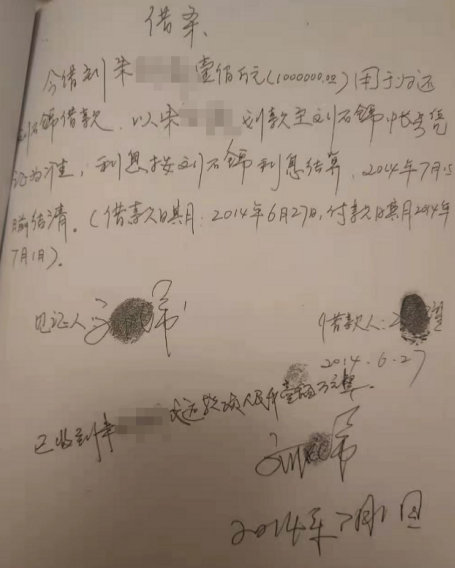 借条
今借到朱 壹佰万元(1000000.00)用于归还
刘石锦借款，以朱 划款至刘石锦帐号凭
证为准，利息按刘石锦利息结算，2014年7月15
前结清。(借款日期：2014年6月27日，付款日期2014年
7月1日)。
见证人
借款人：
2014.6.27
已收到朱 归还款项人民币壹佰万元整。
2014年7月1日